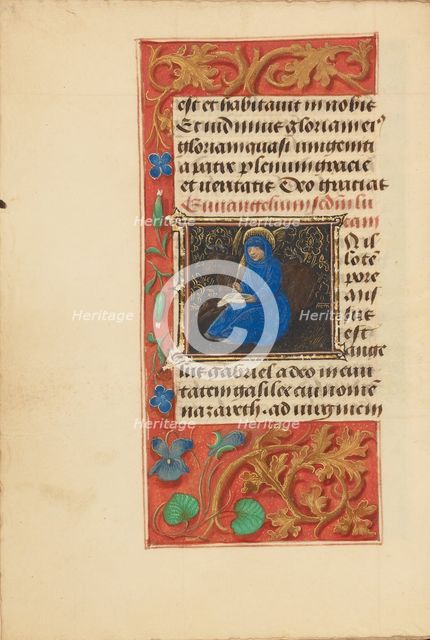 est et habitauit in nobis
Et uidimus gloriam ei
gloriam quasi unigeniti
a patre plenum gracie
et ueritatis Deo gracias
Euuangelium scdm lu
cam
N il
lo te
pore
mis
sus
est
ange
lus gabriel a deo in ciui
tatem galilee cui nomen
nazareth. ad uirginem
Heritage Heritage Heritage
Heritage Heritage
Heritage Heritage Heritage